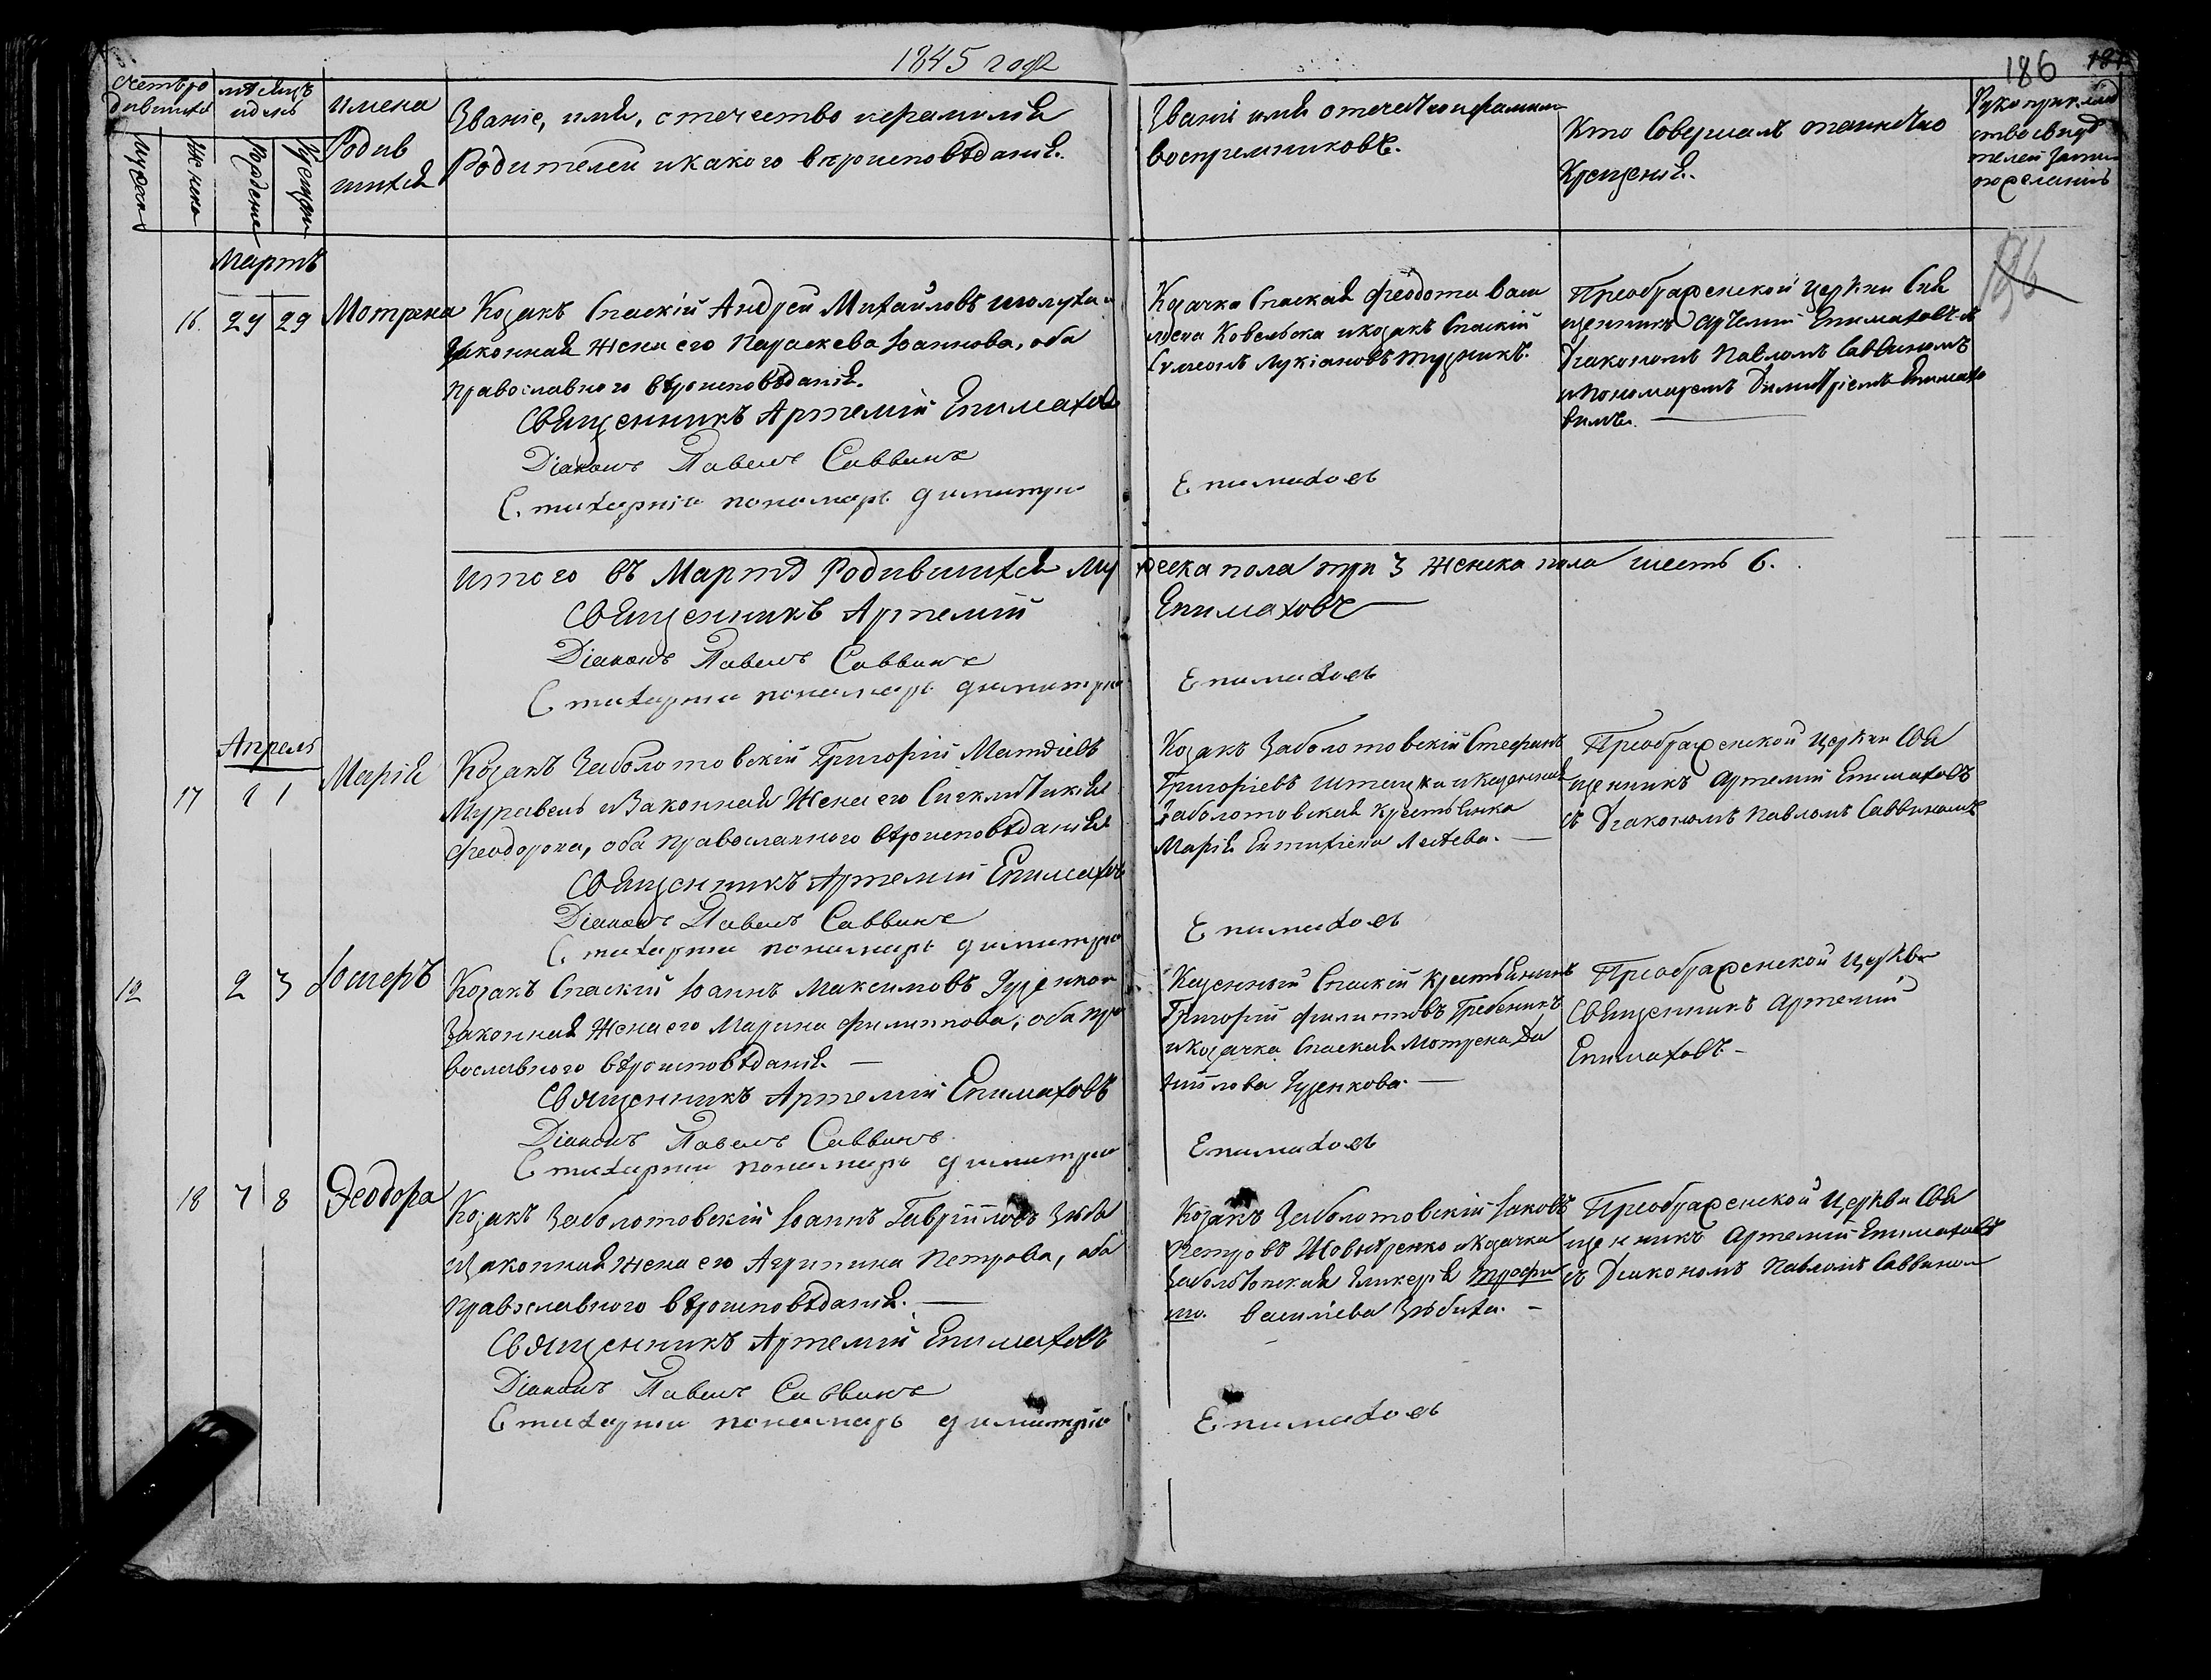 1845 года
186
Счетъ родившихся
мѣсяцъ и день
имена Родившихся
Званіе, имя, отчество и фамилія
Родителей и какого вѣроисповѣданія.
Званіе имя отечество и фамилія
воспрiемниковъ.
Кто Совершалъ таинство
Крещенія.
Рукоприклад
ство свидѣ
телей записи
по желанію
Мужска
Женска
Рожденіе
Крещеніе
Мартъ
16. 29 29 Мотрена
Козакъ Спаскій Андрей Михайловъ
законная жена его Параскева Іоаннова, оба
православного вѣроисповѣданія.
Священникъ Артемій Епимаховъ
Діаконъ Павелъ Саввинъ
Стихарній пономарь Димитрій
Козачка Спаская Феодота Васи
льева Ковельска и козакъ Спаскій
Сумеонъ Лукіановъ
Епимаховъ
Преображенской Церкви Свя
щенникъ Артемій Епимаховъ съ
Діакономъ Павломъ Саввиномъ
и Пономаремъ Димитріемъ Епимахо
вимъ.
186
Итого въ Мартѣ Родившихся му
жеска пола три 3 женска пола шесть 6.
Священникъ Артемій
Епимаховъ
Діаконъ Павелъ Саввинъ
Стихарній пономарь Димитрій
Епимаховъ
Апрель
17 1 1 Марія
Козакъ Заболотовскій Григорій Матѳіевъ
Муравель и Законная жена его Сигклитикія
Феодорова, оба православного вѣроисповѣданія
Священникъ Артемій Епимаховъ
Діаконъ Павелъ Саввинъ
Стихарній пономарь Димитрій
Козакъ Заболотовскій Стефанъ
Григоріевъ и Казенная
Заболотовская Крестьянка
Марія
Епимаховъ
Преображенской Церкви Свя
щенникъ Артемій Епимаховъ
съ Діакономъ Павломъ Саввиномъ
12 2 3 Іосифъ
Козакъ Спаскій Іоаннъ Максимовъ Гуженко и
Законная жена его Марина Филиппова, оба пра
вославного вѣроисповѣданія.
Священникъ Артемій Епимаховъ
Діаконъ Павелъ Саввинъ
Стихарній пономарь Димитрій
Казенный Спаскій крестьянинъ
Григорій Филиповъ Гребеникъ
и козачка Спаская Мотрена Да
ніилова Гуженкова.
Епимаховъ
Преображенской Церкви
Священникъ Артемій
Епимаховъ
18 7 8 Феодора
Козакъ Заболотовскій Іоаннъ Гавріиловъ
и законная жена его Агрипина Петрова, оба
Православного вѣроисповѣданія.
Священникъ Артемій Епимаховъ
Діаконъ Павелъ Саввинъ
Стихарній пономарь Димитрій
Козакъ Заболотовскій Іаковъ
Петровъ и козачка
Гликерія
Василіева
Епимаховъ
Преображенской Церкви Свя
щенникъ Артемій Епимаховъ
съ Діакономъ Павломъ Саввином